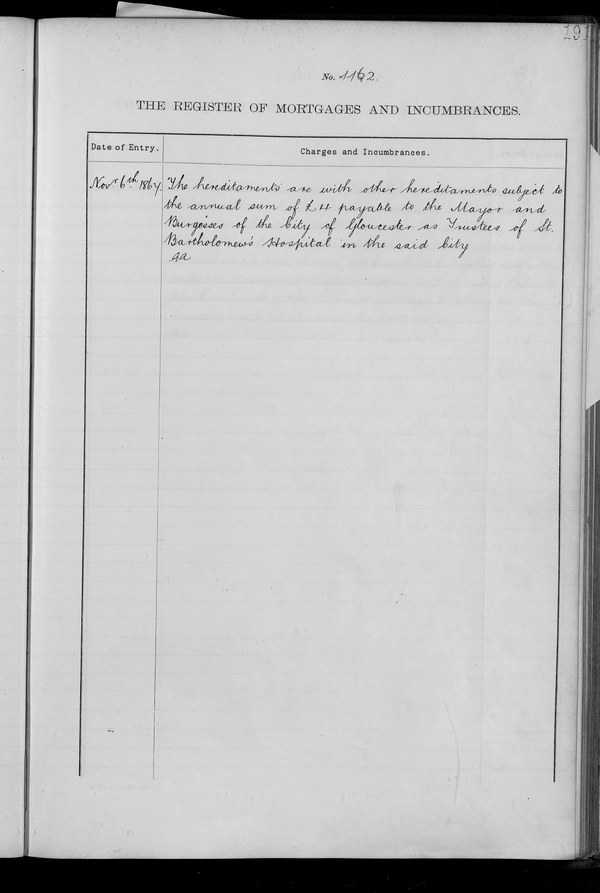 191
No. 1162.
THE REGISTER OF MORTGAGES AND INCUMBRANCES.
Date of Entry.
Charges and Incumbrances.
Novr. 6th 1864. The hereditaments are with other hereditaments subject to
the annual sum of £4 payable to the Mayor and
Burgesses of the City of Gloucester as Trustees of St.
Bartholomew's Hospital in the said City